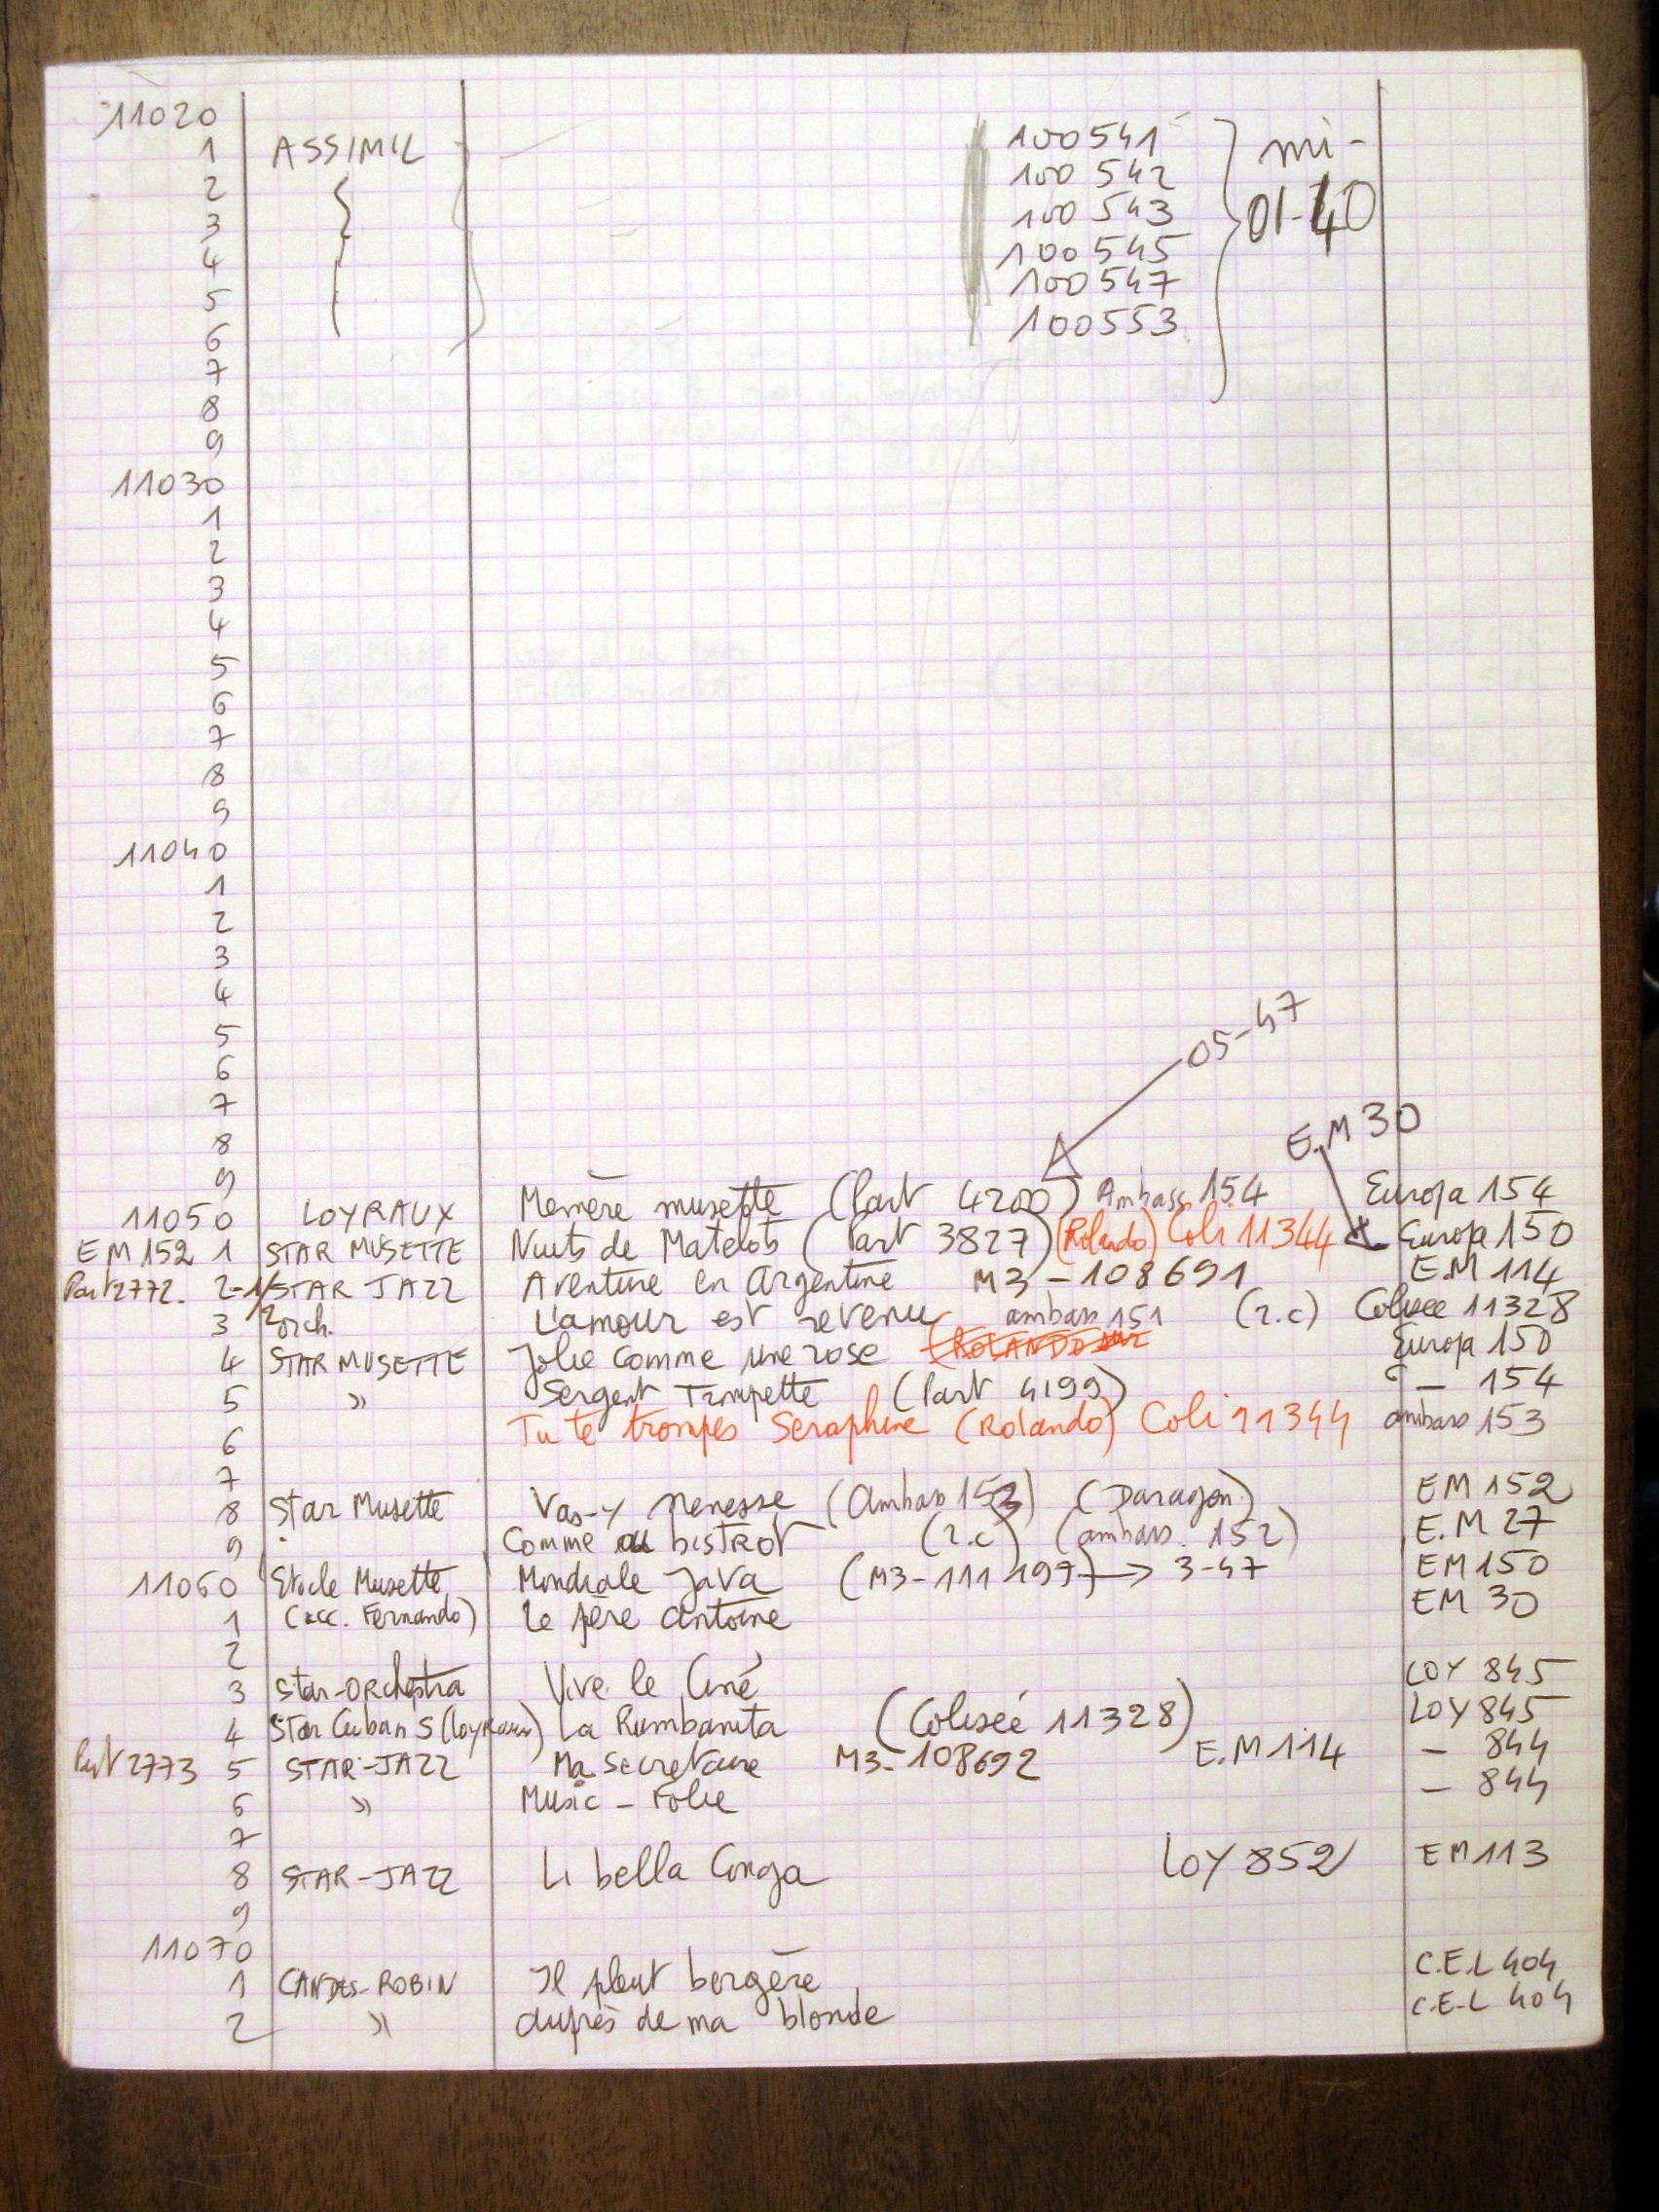 11020
1 ASSIMIL 100541 mi-
2 100542 01-40
3 100543
4 100545
5 100547
6 100553
7
8
9
11030
1
2
3
4
5
6
7
8
9
11040
1
2
3
4
5
6 05-47
7
8 E.M 30
9
11050 LOYRAUX Memère musette (Part 4200) Ambass 154 Europa 154
EM 152 1 STAR MUSETTE Nuits de Matelots (Part 3827) (Rolando) Coli 11344 Europa 150
Part 2772. 2-1/ STAR JAZZ Aventure en Argentine M3-108691 E.M 114
3 orch. L'amour est revenu ambass 151 (r.c) Colisee 11328
4 STAR MUSETTE Jolie comme une rose (ROLANDO Europa 150
5 » Sergent Trompette (Part 4199) — 154
6 Tu te trompes Seraphine (Rolando) Coli 11344 ambass 153
7
8 Star Musette Vas-y Nenesse (Ambass 153) (Daragon) EM 152
9 Comme au bistrot (r.c) (ambass. 152) E.M 27
11060 Etoile Musette Mondiale Java (M3-111197) → 3-47 EM 150
1 (acc. Fernando) Le père Antoine EM 30
2
3 Star-Orchestra Vive le Ciné LOY 845
4 Star Cuban S (Loyraux) La Rumbanita (Colisée 11328) LOY 845
Part 2773 5 STAR-JAZZ Ma secretaire M3-108692 E.M 114 — 844
6 » Music-Folie — 844
7
8 STAR-JAZZ Li bella Conga LOY 852 EM 113
9
11070
1 CANDES-ROBIN Il pleut bergère C.E.L 404
2 » Auprès de ma blonde C.E.L 404